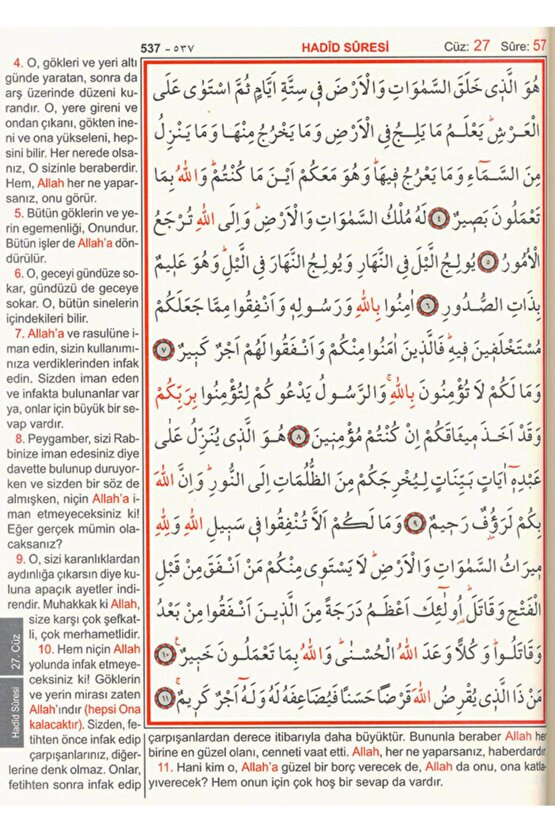 537 - ٥٣٧
HADÎD SÛRESİ
Cüz: 27 Sûre: 57
4. O, gökleri ve yeri altı
günde yaratan, sonra da
arş üzerinde düzeni ku-
randır. O, yere gireni ve
ondan çıkanı, gökten ine-
ni ve ona yükseleni, hep-
sini bilir. Her nerede olsa-
nız, O sizinle beraberdir.
Hem, Allah her ne yapar-
sanız, onu görür.
5. Bütün göklerin ve ye-
rin egemenliği, Onundur.
Bütün işler de Allah'a dön-
dürülür.
6. O, geceyi gündüze so-
kar, gündüzü de geceye
sokar. O, bütün sinelerin
içindekileri bilir.
7. Allah'a ve rasulüne i-
man edin, sizin kullanımı-
nıza verdiklerinden infak
edin. Sizden iman eden
ve infakta bulunanlar var
ya, onlar için büyük bir se-
vap vardır.
8. Peygamber, sizi Rab-
binize iman edesiniz diye
davette bulunup duruyor-
ken ve sizden bir söz de
almışken, niçin Allah'a i-
man etmeyeceksiniz ki!
Eğer gerçek mümin ola-
caksanız?
9. O, sizi karanlıklardan
aydınlığa çıkarsın diye ku-
luna apaçık ayetler indi-
rendir. Muhakkak ki Allah,
size karşı çok şefkat-
li, çok merhametlidir.
10. Hem niçin Allah
yolunda infak etmeye-
ceksiniz ki! Göklerin
ve yerin mirası zaten
Allah'ındır (hepsi Ona
kalacaktır). Sizden, fe-
tihten önce infak edip
çarpışanlarınız, diğer-
lerine denk olmaz. Onlar,
fetihten sonra infak edip
27. Cüz
Hadîd Sûresi
هُوَ الَّذٖي خَلَقَ السَّمٰوَاتِ وَالْاَرْضَ فٖي سِتَّةِ اَيَّامٍ ثُمَّ اسْتَوٰى عَلَى
الْعَرْشِؕ يَعْلَمُ مَا يَلِجُ فِي الْاَرْضِ وَمَا يَخْرُجُ مِنْهَا وَمَا يَنْزِلُ
مِنَ السَّمَٓاءِ وَمَا يَعْرُجُ فٖيهَاؕ وَهُوَ مَعَكُمْ اَيْنَ مَا كُنْتُمْؕ وَاللّٰهُ بِمَا
تَعْمَلُونَ بَصٖيرٌ ﴿٤﴾ لَهُ مُلْكُ السَّمٰوَاتِ وَالْاَرْضِؕ وَاِلَى اللّٰهِ تُرْجَعُ
الْاُمُورُ ﴿٥﴾ يُولِجُ الَّيْلَ فِي النَّهَارِ وَيُولِجُ النَّهَارَ فِي الَّيْلِؕ وَهُوَ عَلٖيمٌ
بِذَاتِ الصُّدُورِ ﴿٦﴾ اٰمِنُوا بِاللّٰهِ وَرَسُولِهٖ وَاَنْفِقُوا مِمَّا جَعَلَكُمْ
مُسْتَخْلَفٖينَ فٖيهِؕ فَالَّذٖينَ اٰمَنُوا مِنْكُمْ وَاَنْفَقُوا لَهُمْ اَجْرٌ كَبٖيرٌ ﴿٧﴾
وَمَا لَكُمْ لَا تُؤْمِنُونَ بِاللّٰهِۚ وَالرَّسُولُ يَدْعُوكُمْ لِتُؤْمِنُوا بِرَبِّكُمْ
وَقَدْ اَخَذَ مٖيثَاقَكُمْ اِنْ كُنْتُمْ مُؤْمِنٖينَ ﴿٨﴾ هُوَ الَّذٖي يُنَزِّلُ عَلٰى
عَبْدِهٖٓ اٰيَاتٍ بَيِّنَاتٍ لِيُخْرِجَكُمْ مِنَ الظُّلُمَاتِ اِلَى النُّورِؕ وَاِنَّ اللّٰهَ
بِكُمْ لَرَؤُفٌ رَحٖيمٌ ﴿٩﴾ وَمَا لَكُمْ اَلَّا تُنْفِقُوا فٖي سَبٖيلِ اللّٰهِ وَلِلّٰهِ
مٖيرَاثُ السَّمٰوَاتِ وَالْاَرْضِؕ لَا يَسْتَوٖي مِنْكُمْ مَنْ اَنْفَقَ مِنْ قَبْلِ
الْفَتْحِ وَقَاتَلَؕ اُو۬لٰٓئِكَ اَعْظَمُ دَرَجَةً مِنَ الَّذٖينَ اَنْفَقُوا مِنْ بَعْدُ
وَقَاتَلُواؕ وَكُلًّا وَعَدَ اللّٰهُ الْحُسْنٰىؕ وَاللّٰهُ بِمَا تَعْمَلُونَ خَبٖيرٌ ﴿١٠﴾
مَنْ ذَا الَّذٖي يُقْرِضُ اللّٰهَ قَرْضًا حَسَنًا فَيُضَاعِفَهُ لَهُ وَلَهُٓ اَجْرٌ كَرٖيمٌ ﴿١١﴾
çarpışanlardan derece itibarıyla daha büyüktür. Bununla beraber Allah her
birine en güzel olanı, cenneti vaat etti. Allah, her ne yaparsanız, haberdardır
11. Hani kim o, Allah'a güzel bir borç verecek de, Allah da onu, ona katla-
yıverecek? Hem onun için çok hoş bir sevap da vardır.